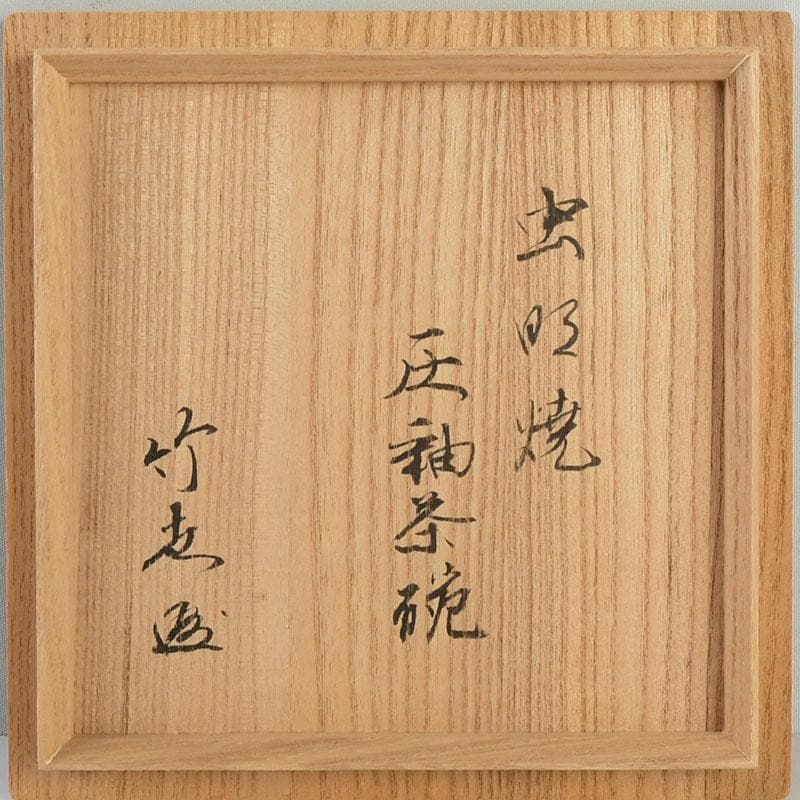 虫明焼
灰釉茶碗
竹志造